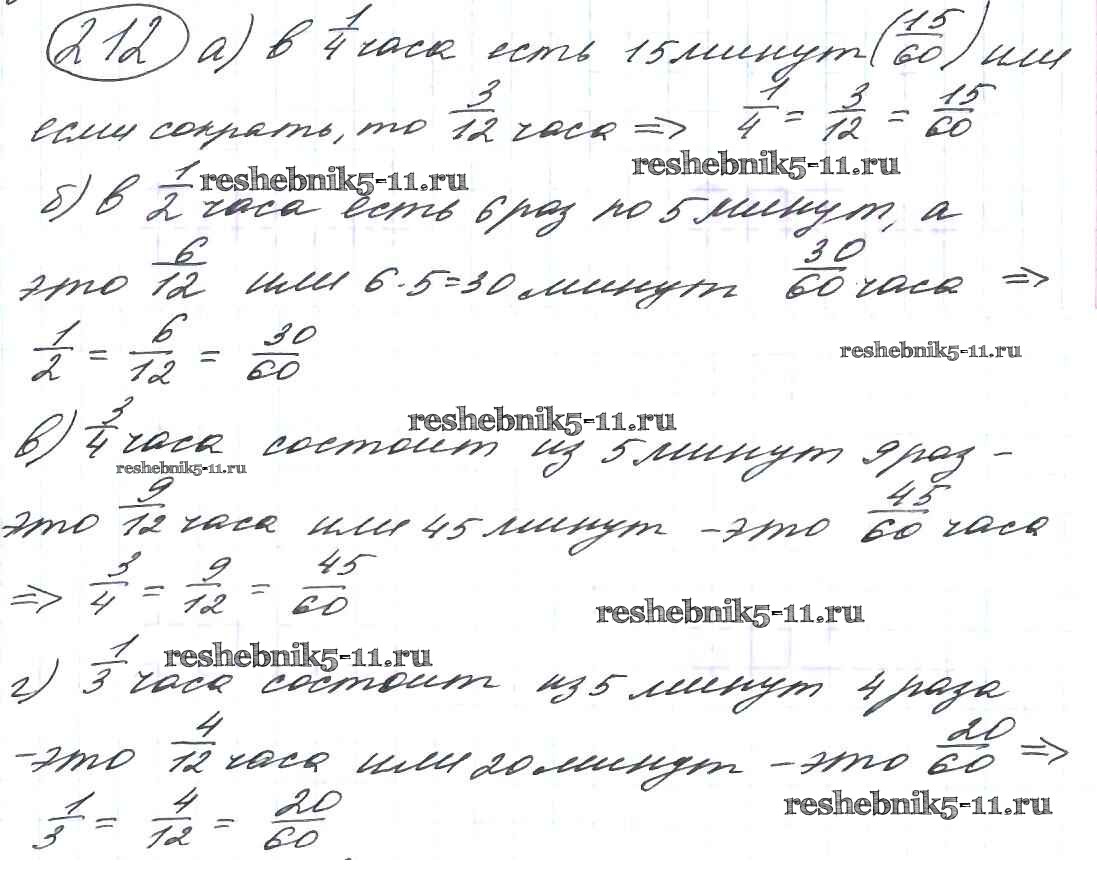 212 а) в 1/4 часа есть 15 минут (15/60) или
если сократь, то 3/12 часа => 1/4 = 3/12 = 15/60
reshebnik5-11.ru reshebnik5-11.ru
б) в 1/2 часа есть 6 раз по 5 минут, а
это 6/12 или 6·5=30 минут 30/60 часа =>
1/2 = 6/12 = 30/60
reshebnik5-11.ru
reshebnik5-11.ru
в) 3/4 часа состоит из 5 минут 9 раз -
reshebnik5-11.ru
это 9/12 часа или 45 минут - это 45/60 часа
=> 3/4 = 9/12 = 45/60
reshebnik5-11.ru
reshebnik5-11.ru
г) 1/3 часа состоит из 5 минут 4 раза
- это 4/12 часа или 20 минут - это 20/60 =>
reshebnik5-11.ru
1/3 = 4/12 = 20/60